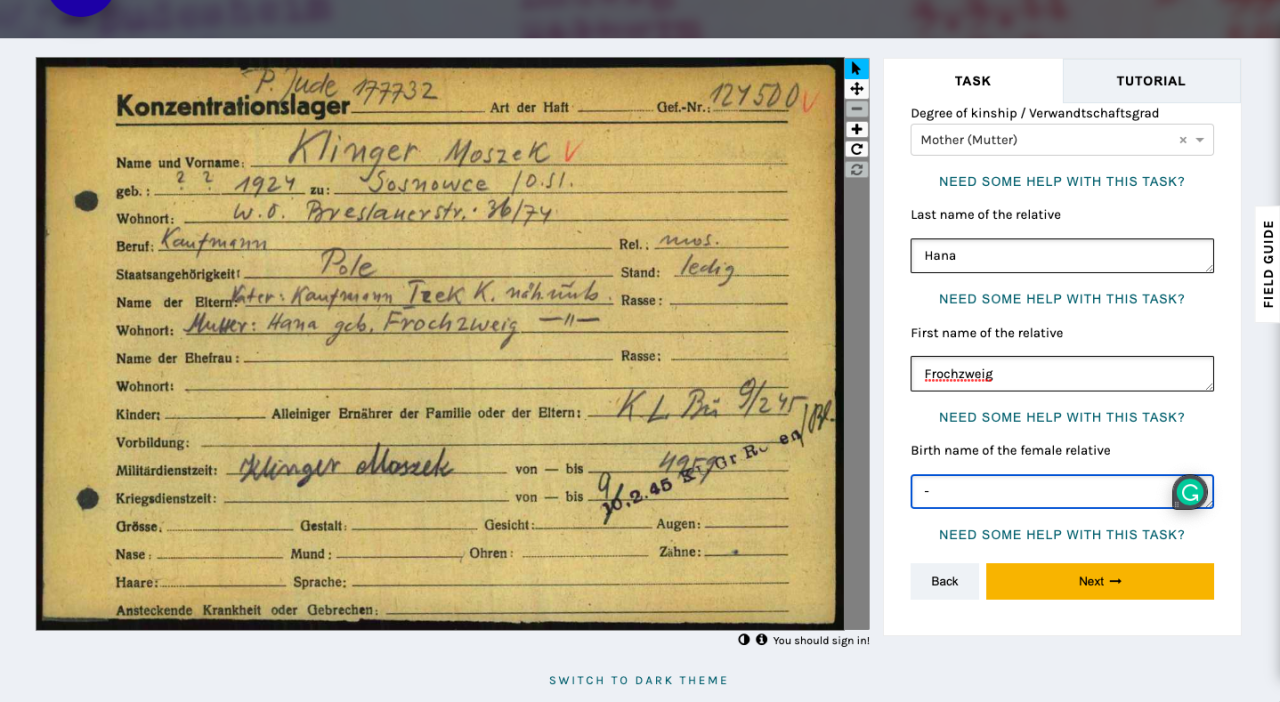 P. Jude 177732
Konzentrationslager Art der Haft Gef.-Nr.: 124500 V
Name und Vorname: Klinger Moszek V
geb.: ? ? 1924 zu: Sosnowce /O.Sl.
Wohnort: w.o. Breslauerstr. 36/74
Beruf: Kaufmann Rel.: mos.
Staatsangehörigkeit: Pole Stand: ledig
Name der Eltern: Vater: Kaufmann Izek K. Rasse:
Wohnort: Mutter: Hana geb. Frochzweig —"—
Name der Ehefrau: Rasse:
Wohnort:
Kinder: Alleiniger Ernährer der Familie oder der Eltern: K L Bu 9/2 45
Vorbildung:
Militärdienstzeit: Klinger Moszek von — bis
Kriegsdienstzeit: von — bis 10.2.45 Gr Ro en
Grösse: Gestalt: Gesicht: Augen:
Nase: Mund: Ohren: Zähne:
Haare: Sprache:
Ansteckende Krankheit oder Gebrechen:
You should sign in!
TASK TUTORIAL
Degree of kinship / Verwandtschaftsgrad
Mother (Mutter) ×
NEED SOME HELP WITH THIS TASK?
Last name of the relative
Hana
NEED SOME HELP WITH THIS TASK?
First name of the relative
Frochzweig
NEED SOME HELP WITH THIS TASK?
Birth name of the female relative
-
NEED SOME HELP WITH THIS TASK?
Back Next →
FIELD GUIDE
SWITCH TO DARK THEME